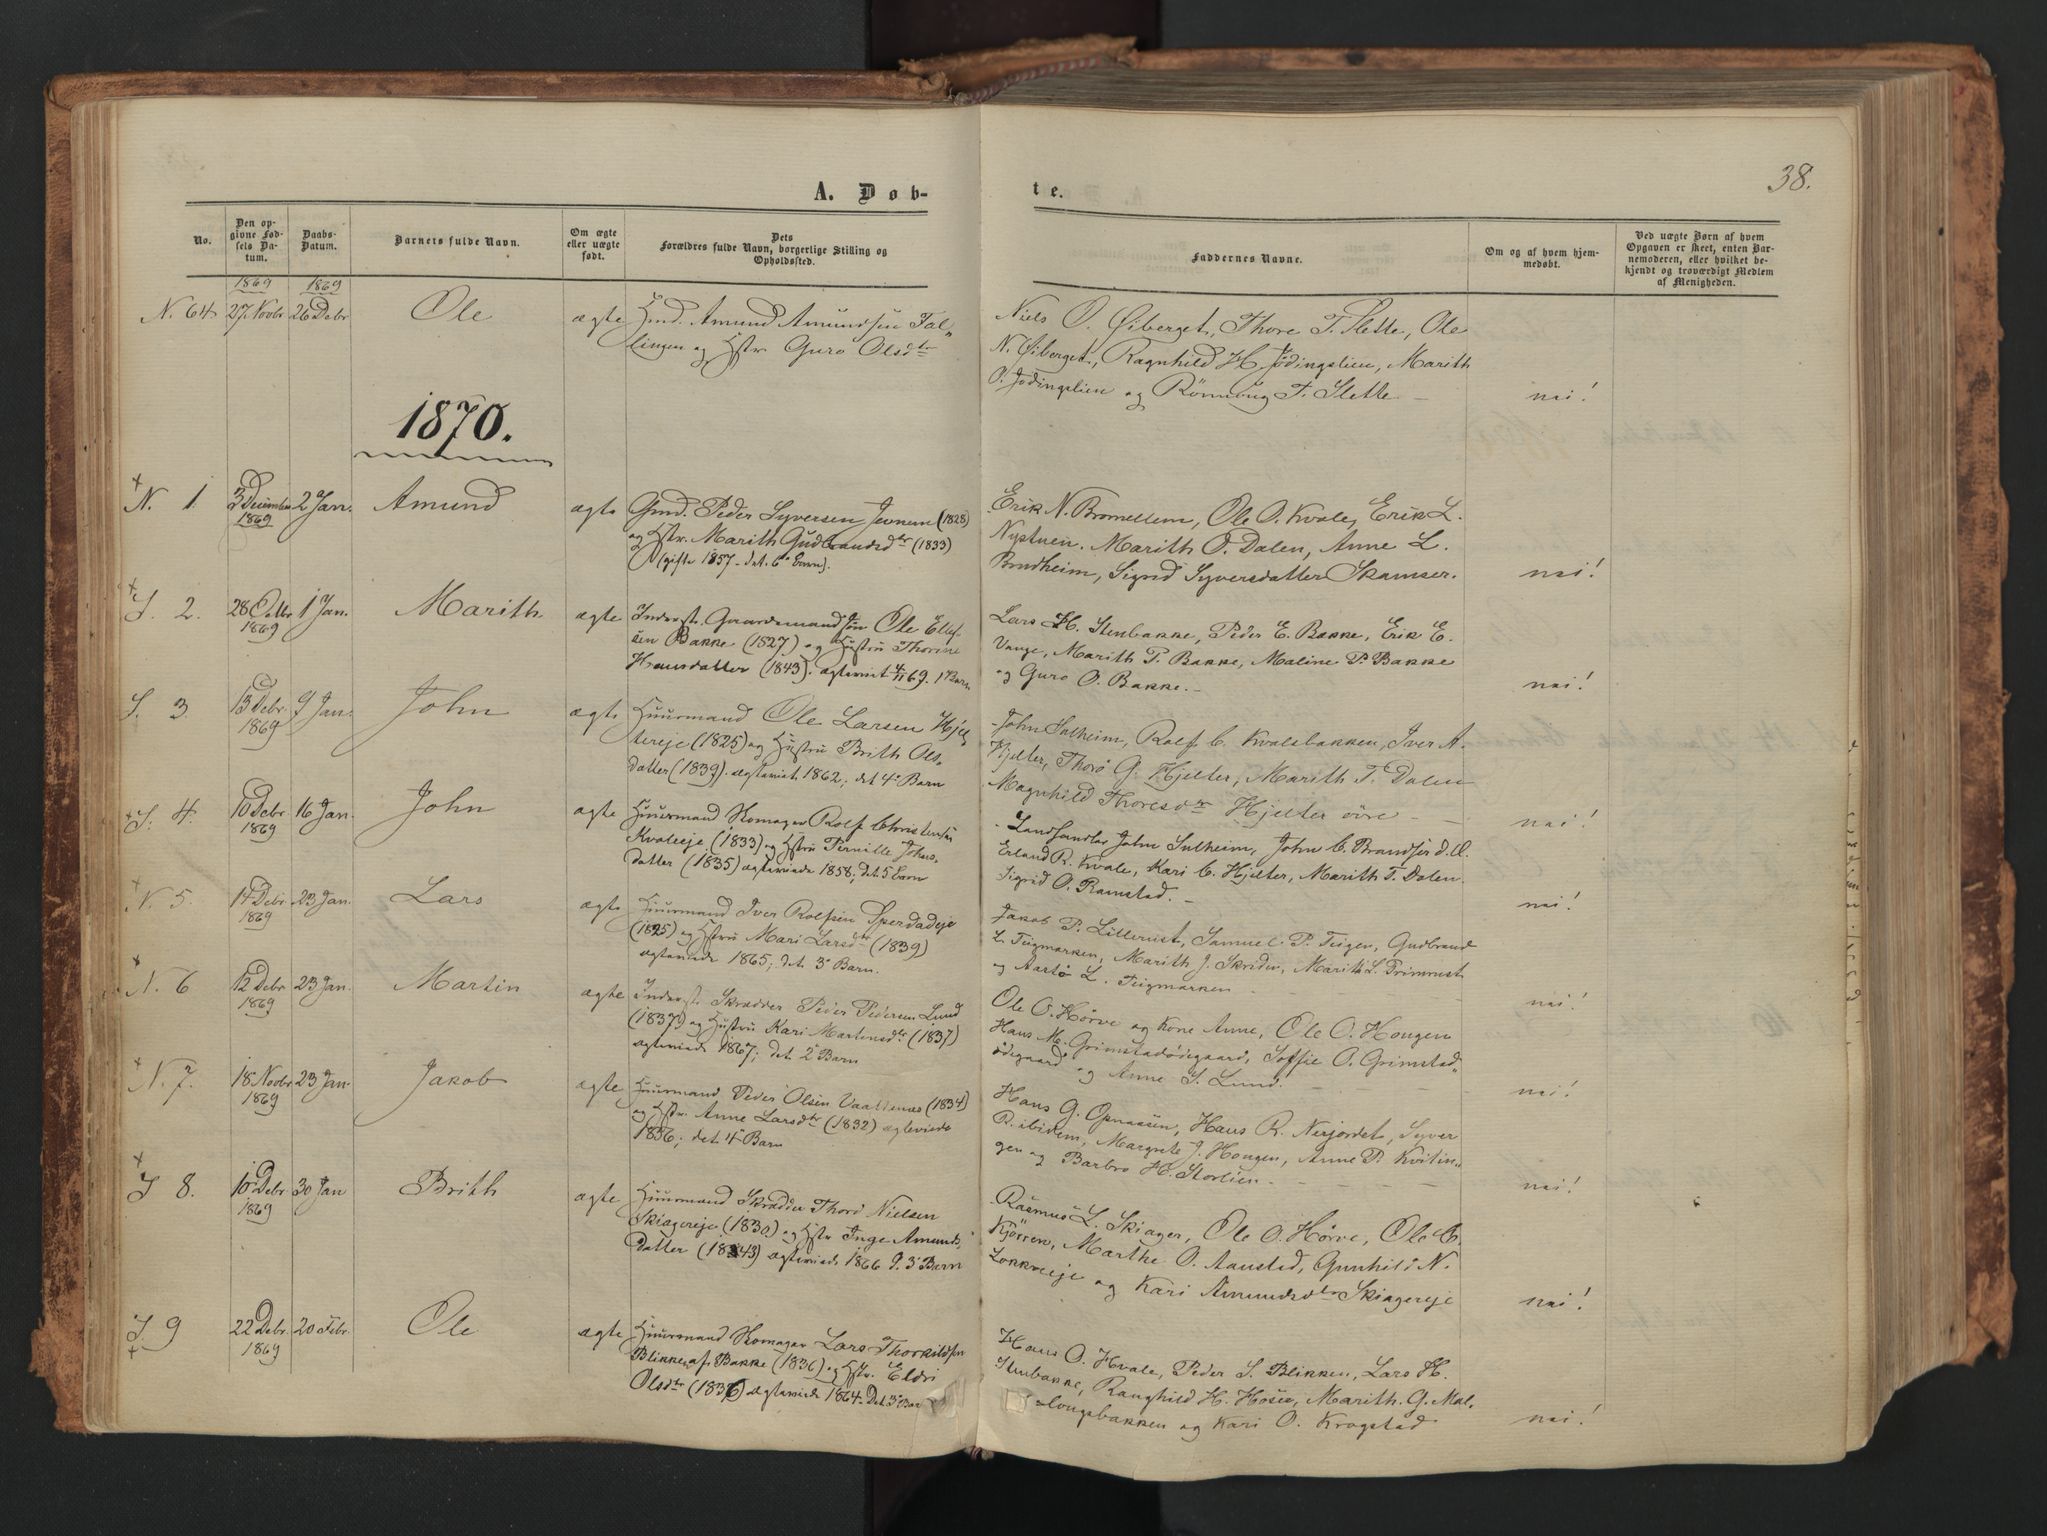 38.
A. Døb-
te.
No.
Den op-
givne Fød-
sels Da-
tum.
Daabs-
Datum.
Barnets fulde Navn.
Om ægte
eller uægte
født.
Dets
Forældres fulde Navn, borgerlige Stilling og
Opholdssted.
Faddernes Navne.
Om og af hvem hjem-
medøbt.
Ved uægte Børn af hvem
Opgaven er skeet, enten Bar-
nemoderen, eller hvilket be-
kjendt og troværdigt Medlem
af Menigheden.
1869 1869
N. 64 27 Novbr 26 Debr Ole ægte
Amund Amundsen Tal-
lingen og Hstr Guro Olsdtr
Niels O. Øiberget, Thore T. Slette, Ole
N. Øiberget, Ragnhild H. Jödingslien, Marith
O. Jödingslien og Rönnoug T. Slette
nei!
1870.
N. 1 3 December 1869 2 Jan. Amund ægte
Gmd. Peder Syversen Jevnem (1828)
og Hstr. Marith Gudbrandsdtr (1833)
(gifte 1857. det 6e Barn).
Erik N. Bromellem, Ole O. Kvale, Erik L.
Nystuen. Marith O. Dalen, Anne L.
Brudheim, Sigrid Syversdatter Skamser.
nei!
S. 2. 28 Octbr 1869 1 Jan. Marith ægte
Inderst. Gaardemandssön Ole Ellef-
sen Bakke (1827) og Hustru Thorine
Hansdatter (1843). ægteviet 4/11 69. 1 Barn
Lars H. Stenbakke, Peder E. Bakke, Erik E.
Vange, Marith P. Bakke, Maline P. Bakke
og Guro O. Bakke.
nei!
S. 3 13 Debr. 1869 9 Jan. John ægte
Huusmand Ole Larsen Hjel-
tereje (1825) og Hustru Brith Ols-
datter (1839). ægteviet 1862; det 4e Barn
John Sulheim, Rolf C. Kvalsbakken, Iver A.
Hjelter, Thorö G. Hjelter, Marith T. Dalen
Magnhild Thoresdtr Hjelter övre
nei!
S. 4. 10 Debr 1869 16 Jan. John ægte
Huusmand Skomager Rolf Christensen
Kvaleeje (1833) og Hstru Pernille Johns-
datter (1835) ægteviede 1858; det 5 Barn
Landhandler John Sulheim, John C.
Erland R. Kvale, Kari C. Hjelter, Marith T. Dalen.
Sigrid O. Ramstad.
nei!
N. 5. 14 Debr 1869 23 Jan. Lars ægte
Huusmand Iver Rolfsen Sperdadeje
(1825) og Hstru Mari Larsdtr (1839)
ægteviede 1865; det 3e Barn.
Jakob P. Lillerust, Samuel P. Teigen, Gudbrand
L. Teigmarken, Marith J. Skriden, Marith L. Grimrust
og Aastö L. Teigmarken
nei!
N. 6 12 Debr 1869 23 Jan. Martin ægte
Inderst. Skrædder Peder Pedersen Lund
(1837) og Hustru Kari Martensdtr (1837)
ægteviede 1867; det 2e Barn
Ole O. Hörve og Kone Anne, Ole O. Hougen
Hans M. Grimstadödegaard, Soffie O. Grimstad-
ödegaard og Anne S. Lund.
nei!
N. 7. 18 Novbr 1869 23 Jan. Jakob ægte
Huusmand Peder Olsen Vaattenes (1834)
og Hstr. Anne Larsdtr (1832) ægteviede
1856; det 4e Barn
Hans G. Opnaasen, Hans R. Nerjordet, Syver
R. ibidem, Margrete J. Hougen, Anne P. Kvitin-
gen og Barbro H. Storlien
nei!
S 8. 10 Debr 1869 30 Jan Brith ægte
Huusmand Skrædder Thord Nielsen
Skiagereje (1830) og Hstr Inge Amunds-
datter (1843) ægteviede 1866 d. 3e Barn
Rasmus L. Skiager, Ole O. Hörve, Ole C.
Kjörren, Marthe O. Aanstad, Gunhild N.
Lokkreeje og Kari Amundsdtr Skiagereje
nei!
S. 9 22 Debr. 1869 20 Febr. Ole ægte
Huusmand Skomager Lars Thorkildsen
Blikken af Bakke (1836) og Hstr. Eldri
Olsdtr (1836) ægteviede 1864. Det 3e Bar
Hans O. Hvale, Peder S. Blikken, Lars H.
Stenbakke, Ranghild H. Hosev, Marith. G. Mal-
longsbakken og Kari O. Krogstad
nei!